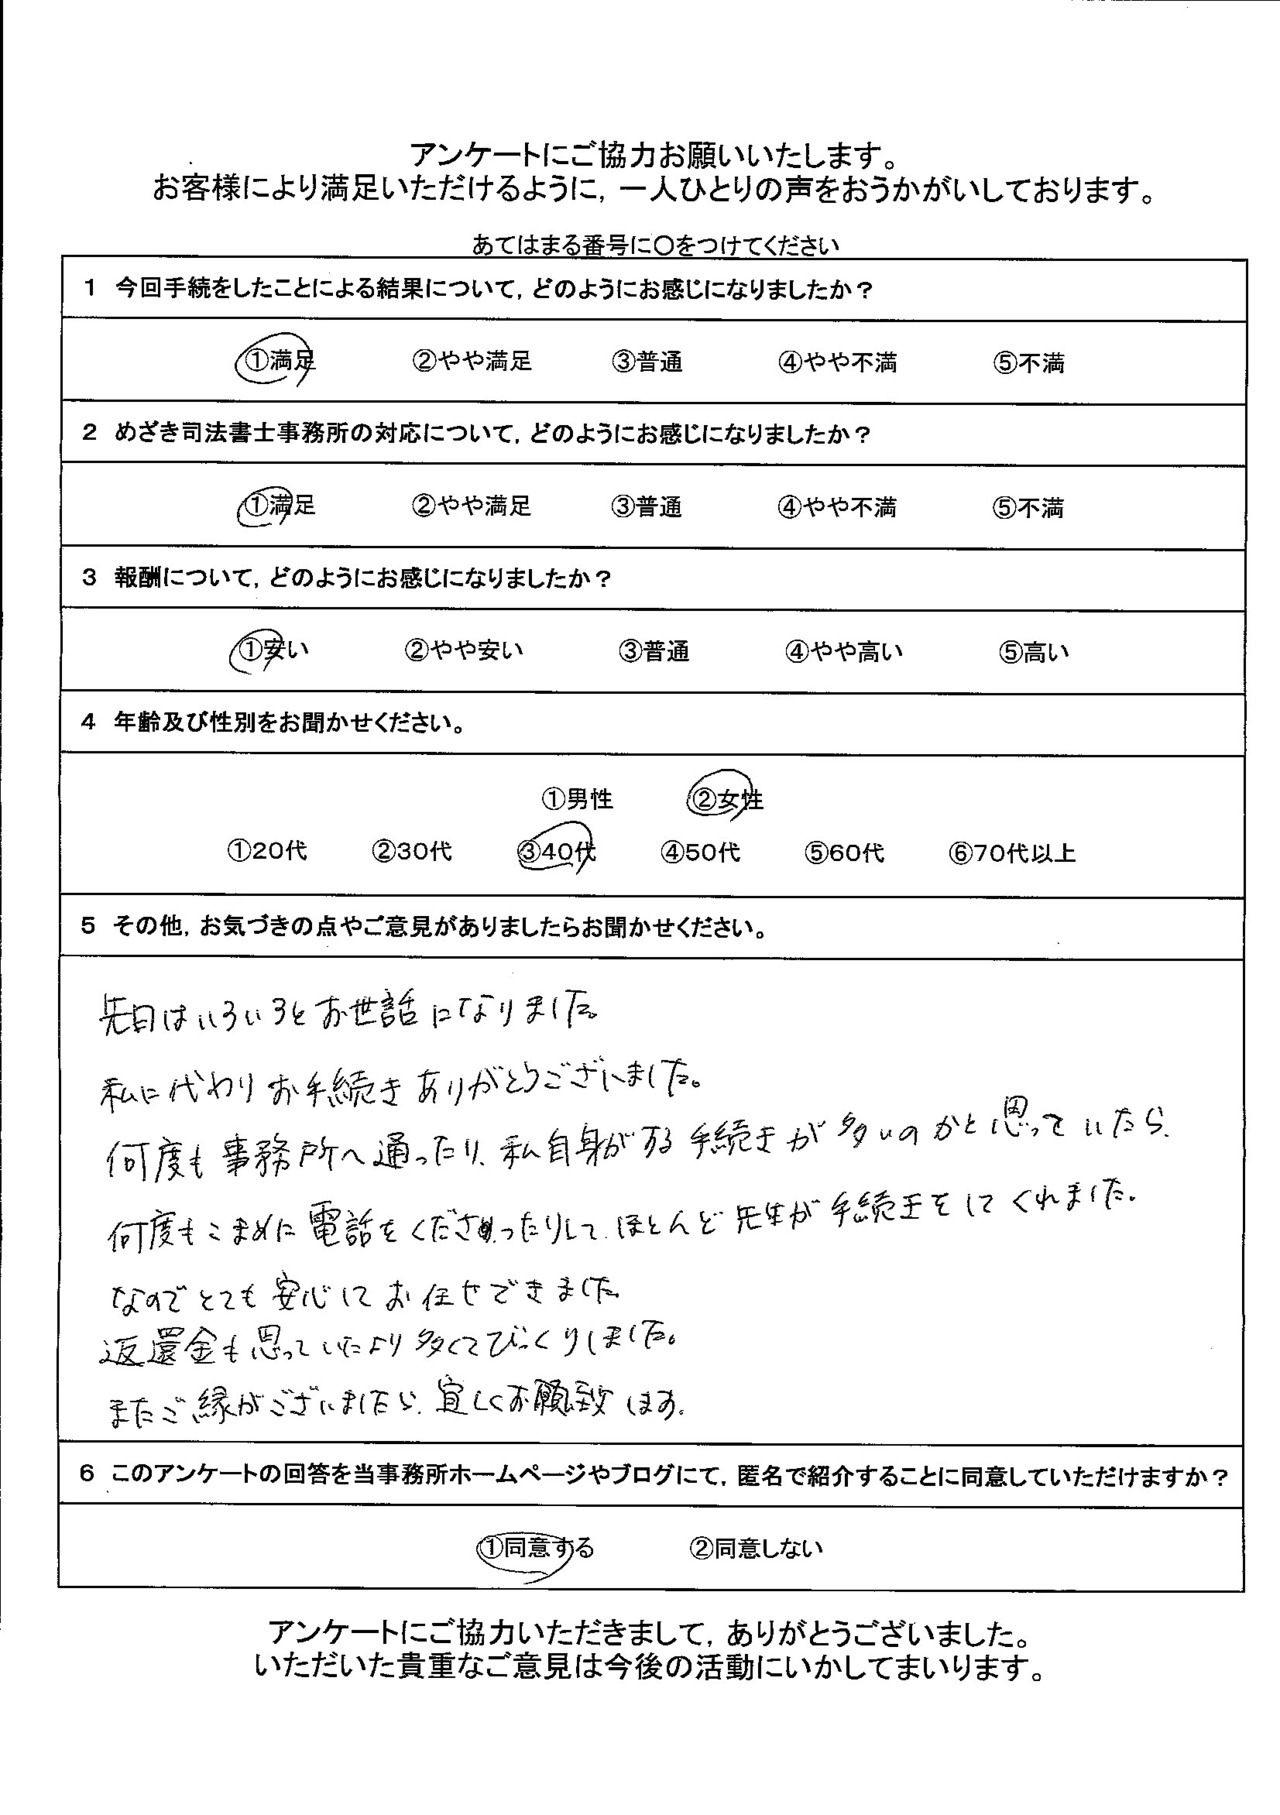 アンケートにご協力お願いいたします。
お客様により満足いただけるように,一人ひとりの声をおうかがいしております。
あてはまる番号に〇をつけてください
1 今回手続をしたことによる結果について,どのようにお感じになりましたか？
①満足 ②やや満足 ③普通 ④やや不満 ⑤不満
2 めざき司法書士事務所の対応について,どのようにお感じになりましたか？
①満足 ②やや満足 ③普通 ④やや不満 ⑤不満
3 報酬について,どのようにお感じになりましたか？
①安い ②やや安い ③普通 ④やや高い ⑤高い
4 年齢及び性別をお聞かせください。
①男性 ②女性
①20代 ②30代 ③40代 ④50代 ⑤60代 ⑥70代以上
5 その他,お気づきの点やご意見がありましたらお聞かせください。
先日はいろいろとお世話になりました。
私に代わりお手続きありがとうございました。
何度も事務所へ通ったり、私自身がする手続きが多いのかと思っていたら、
何度もこまめに電話をくださったりして、ほとんど先生が手続きをしてくれました。
なのでとても安心してお任せできました。
返還金も思っていたより多くてびっくりしました。
またご縁がございましたら、宜しくお願い致します。
6 このアンケートの回答を当事務所ホームページやブログにて,匿名で紹介することに同意していただけますか？
①同意する ②同意しない
アンケートにご協力いただきまして,ありがとうございました。
いただいた貴重なご意見は今後の活動にいかしてまいります。